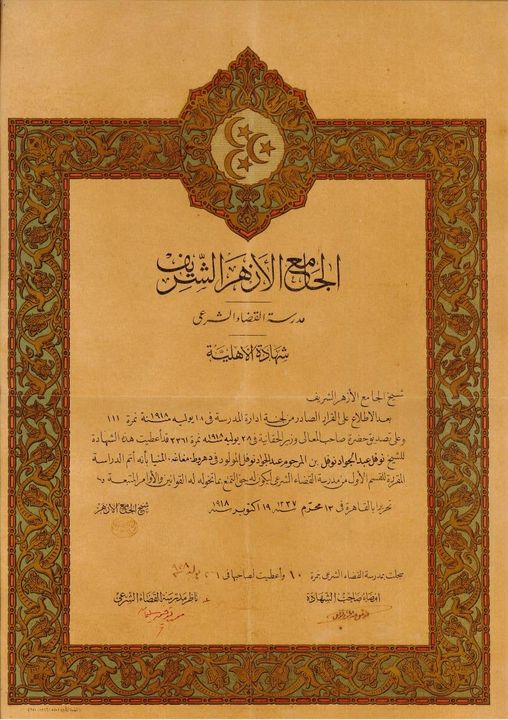 الجامع الأزهر الشريف
مدرسة القضاء الشرعى
شهادة الاهلية
شيخ الجامع الأزهر الشريف
بعد الاطلاع على القرار الصادر من لجنة ادارة المدرسة فى ١٨ يوليه سنة ١٩١٨ نمرة ١١١
وعلى تصديق حضرة صاحب المعالى وزير الحقانية فى ٢٨ يوليه سنة ١٩١٨ نمرة ٢٣٦١ قد أعطيت هذه الشهادة
للشيخ نوفل عبد الجواد نوفل بن المرحوم عبد الجواد نوفل المولود فى دهروط مغاغه المنيا بأنه أتم الدراسة
المقررة للقسم الأول من مدرسة القضاء الشرعى ليكون له حق التمتع بما تخوله له القوانين والأوامر المتبعة
تحريرا بالقاهرة فى ١٣ محرم سنة ١٣٣٧ ١٩ اكتوبر سنة ١٩١٨
شيخ الجامع الأزهر
سجلت بمدرسة القضاء الشرعى بنمرة ١٠ وأعطيت لصاحبها فى
امضاء صاحب الشهادة
ناظر مدرسة القضاء الشرعى